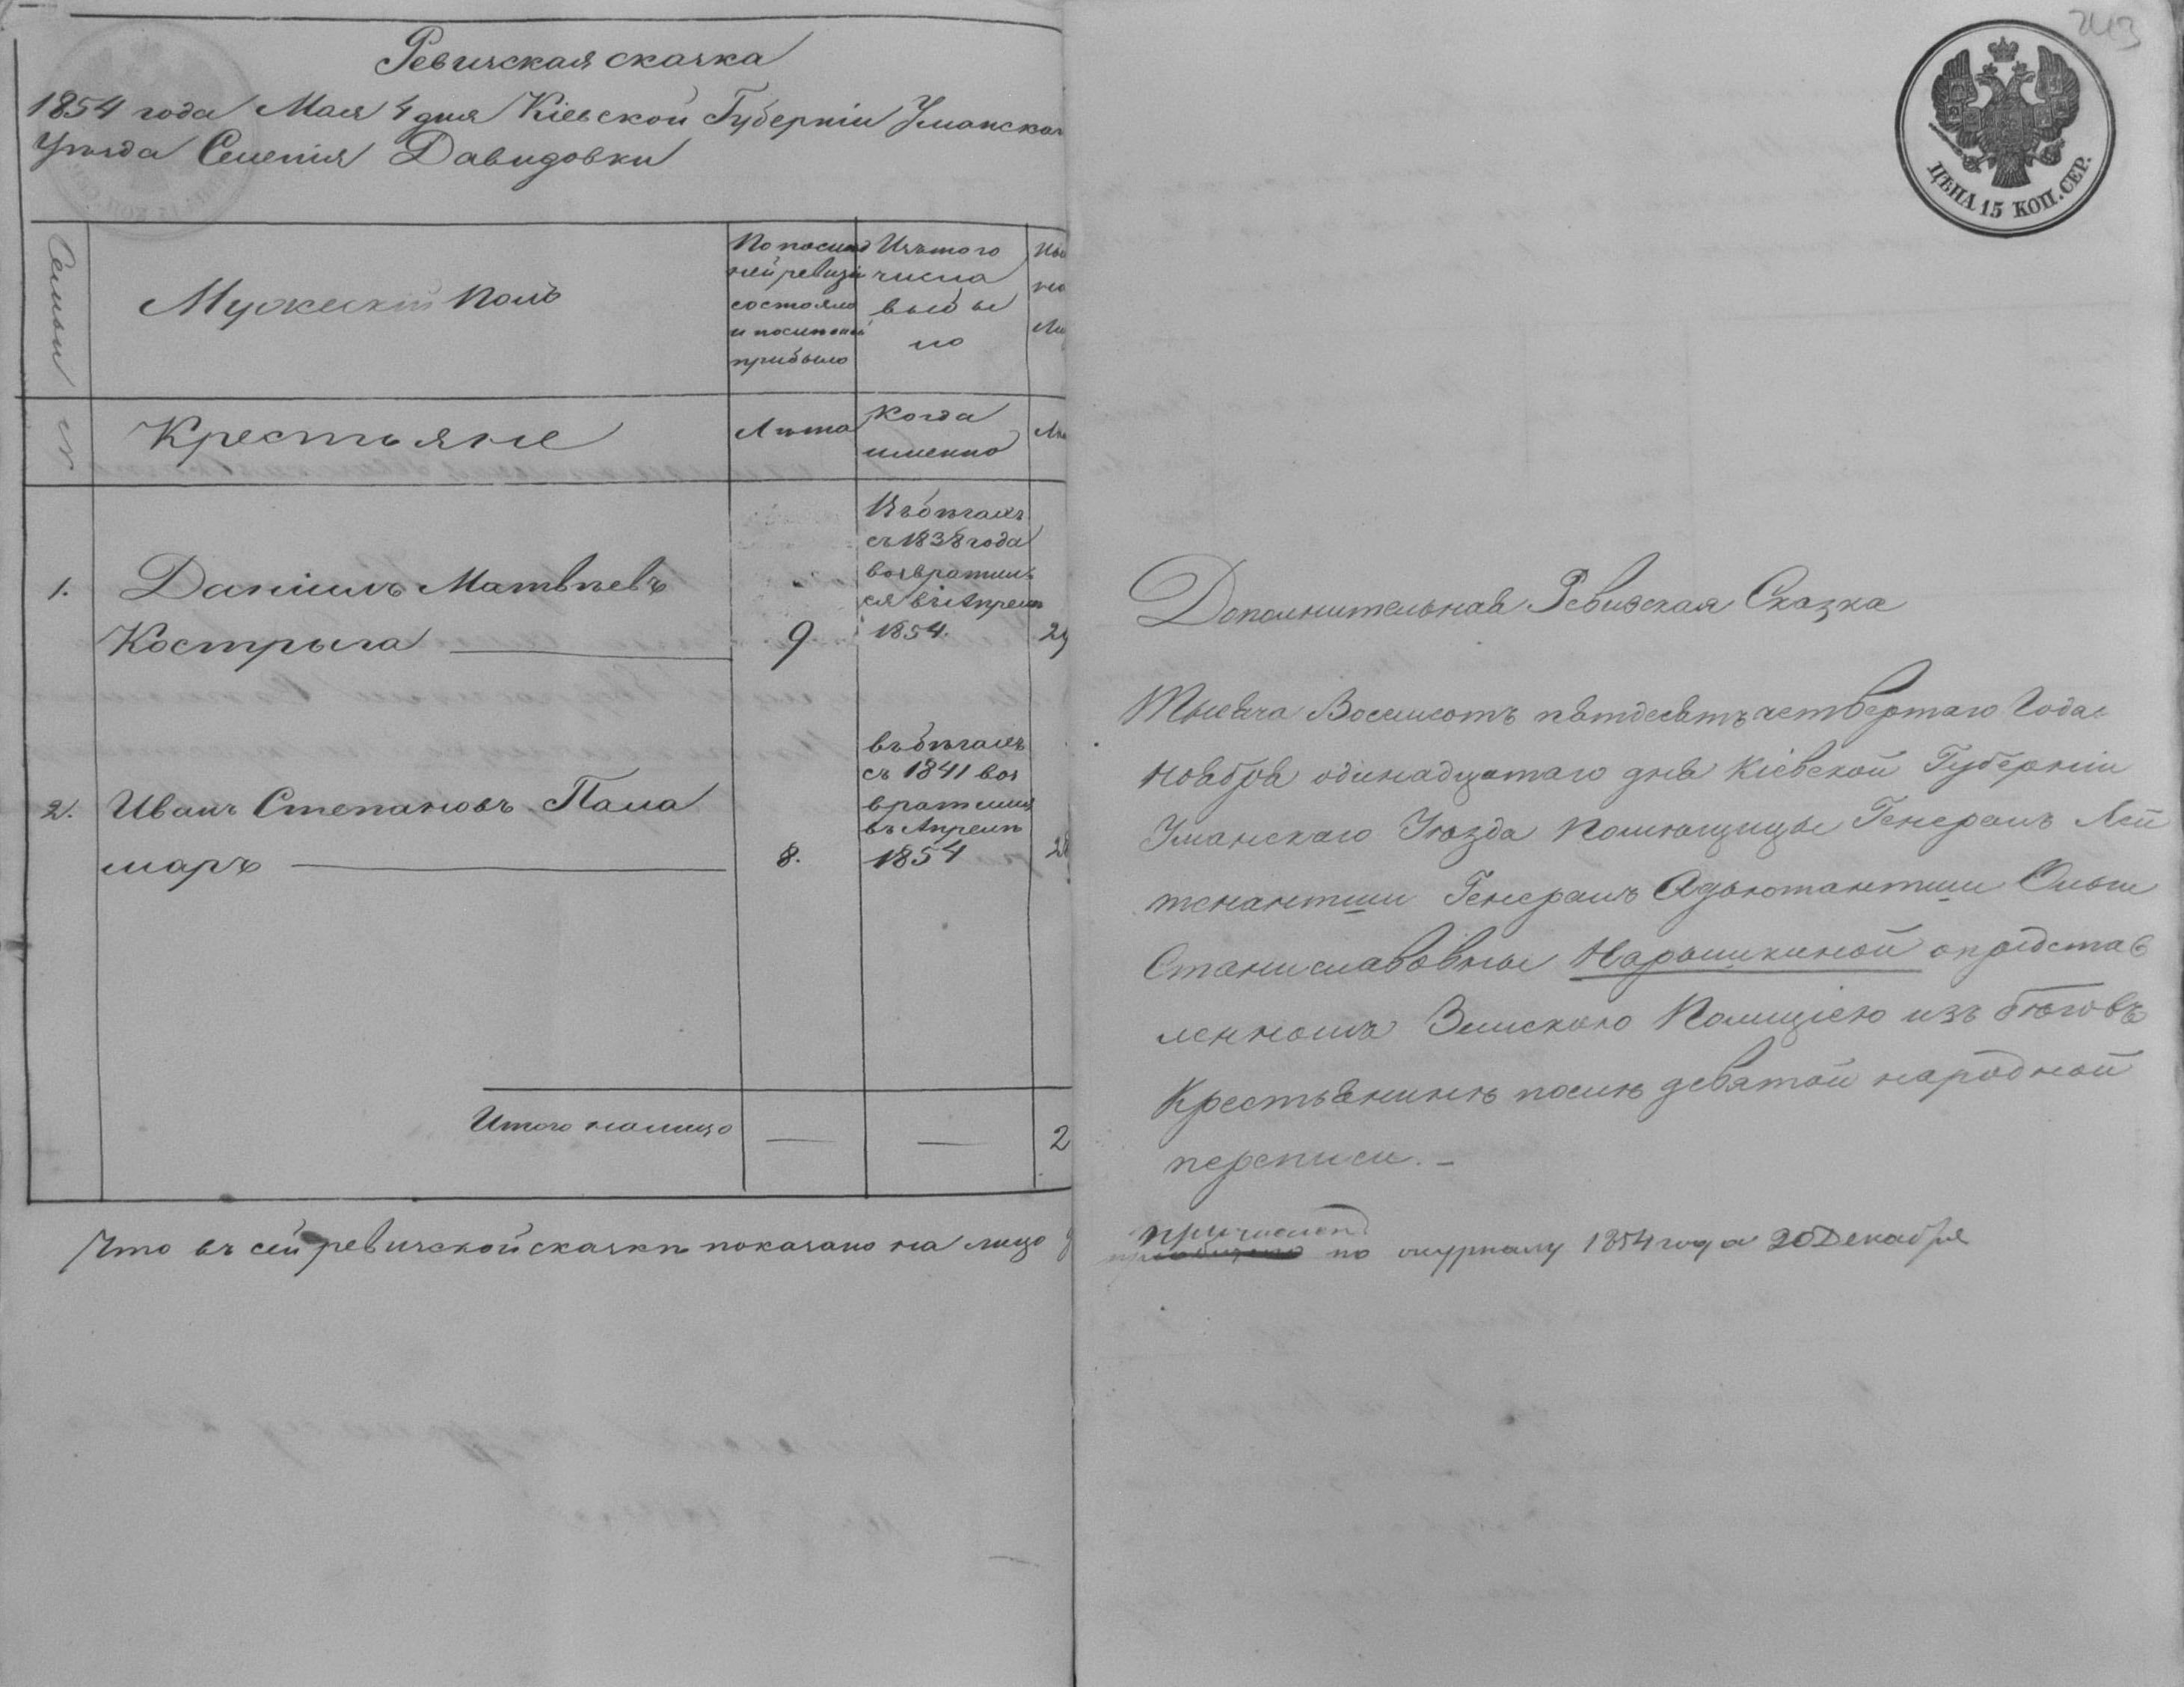 Ревизская сказка
1854 года Мая 4 дня Кіевской Губерніи Уманскаго
Уѣзда Селенія Давидовки
Семьи
Мужескій полъ
По послед
ней ревизіи
состояло
и послѣ оной
прибыло
Изъ того
числа
выбы
ло
№
Крестьяне
Лѣта
Когда
именно
1.
Даніилъ Матвѣевъ
Кострыга
9.
Въ бѣгахъ
съ 1838 года
возвратил
ся въ Апрелѣ
1854.
2.
Иванъ Степановъ Пала
маръ
8.
въ бѣгахъ
съ 1841 воз
вратился
въ Апрелѣ
1854
Итого налицо
2
Что въ сей ревизской сказкѣ показано на лицо
243
ЦѢНА 15 КОП. СЕР.
Дополнительная Ревизская Сказка
Тысяча Восемсотъ пятдесятъ четвертаго Года
Ноября одинадцатаго дня Кіевской Губерніи
Уманскаго Уѣзда Помѣщицы Генералъ Лей
тенантши Генералъ Адъютантши Ольги
Станиславовны Нарышкиной опредстав
ленномъ Земскою Полиціею изъ бѣговъ
Крестьянинѣ послѣ девятой народной
переписи. –
причислен
по журналу 1854 года 20 Декабря